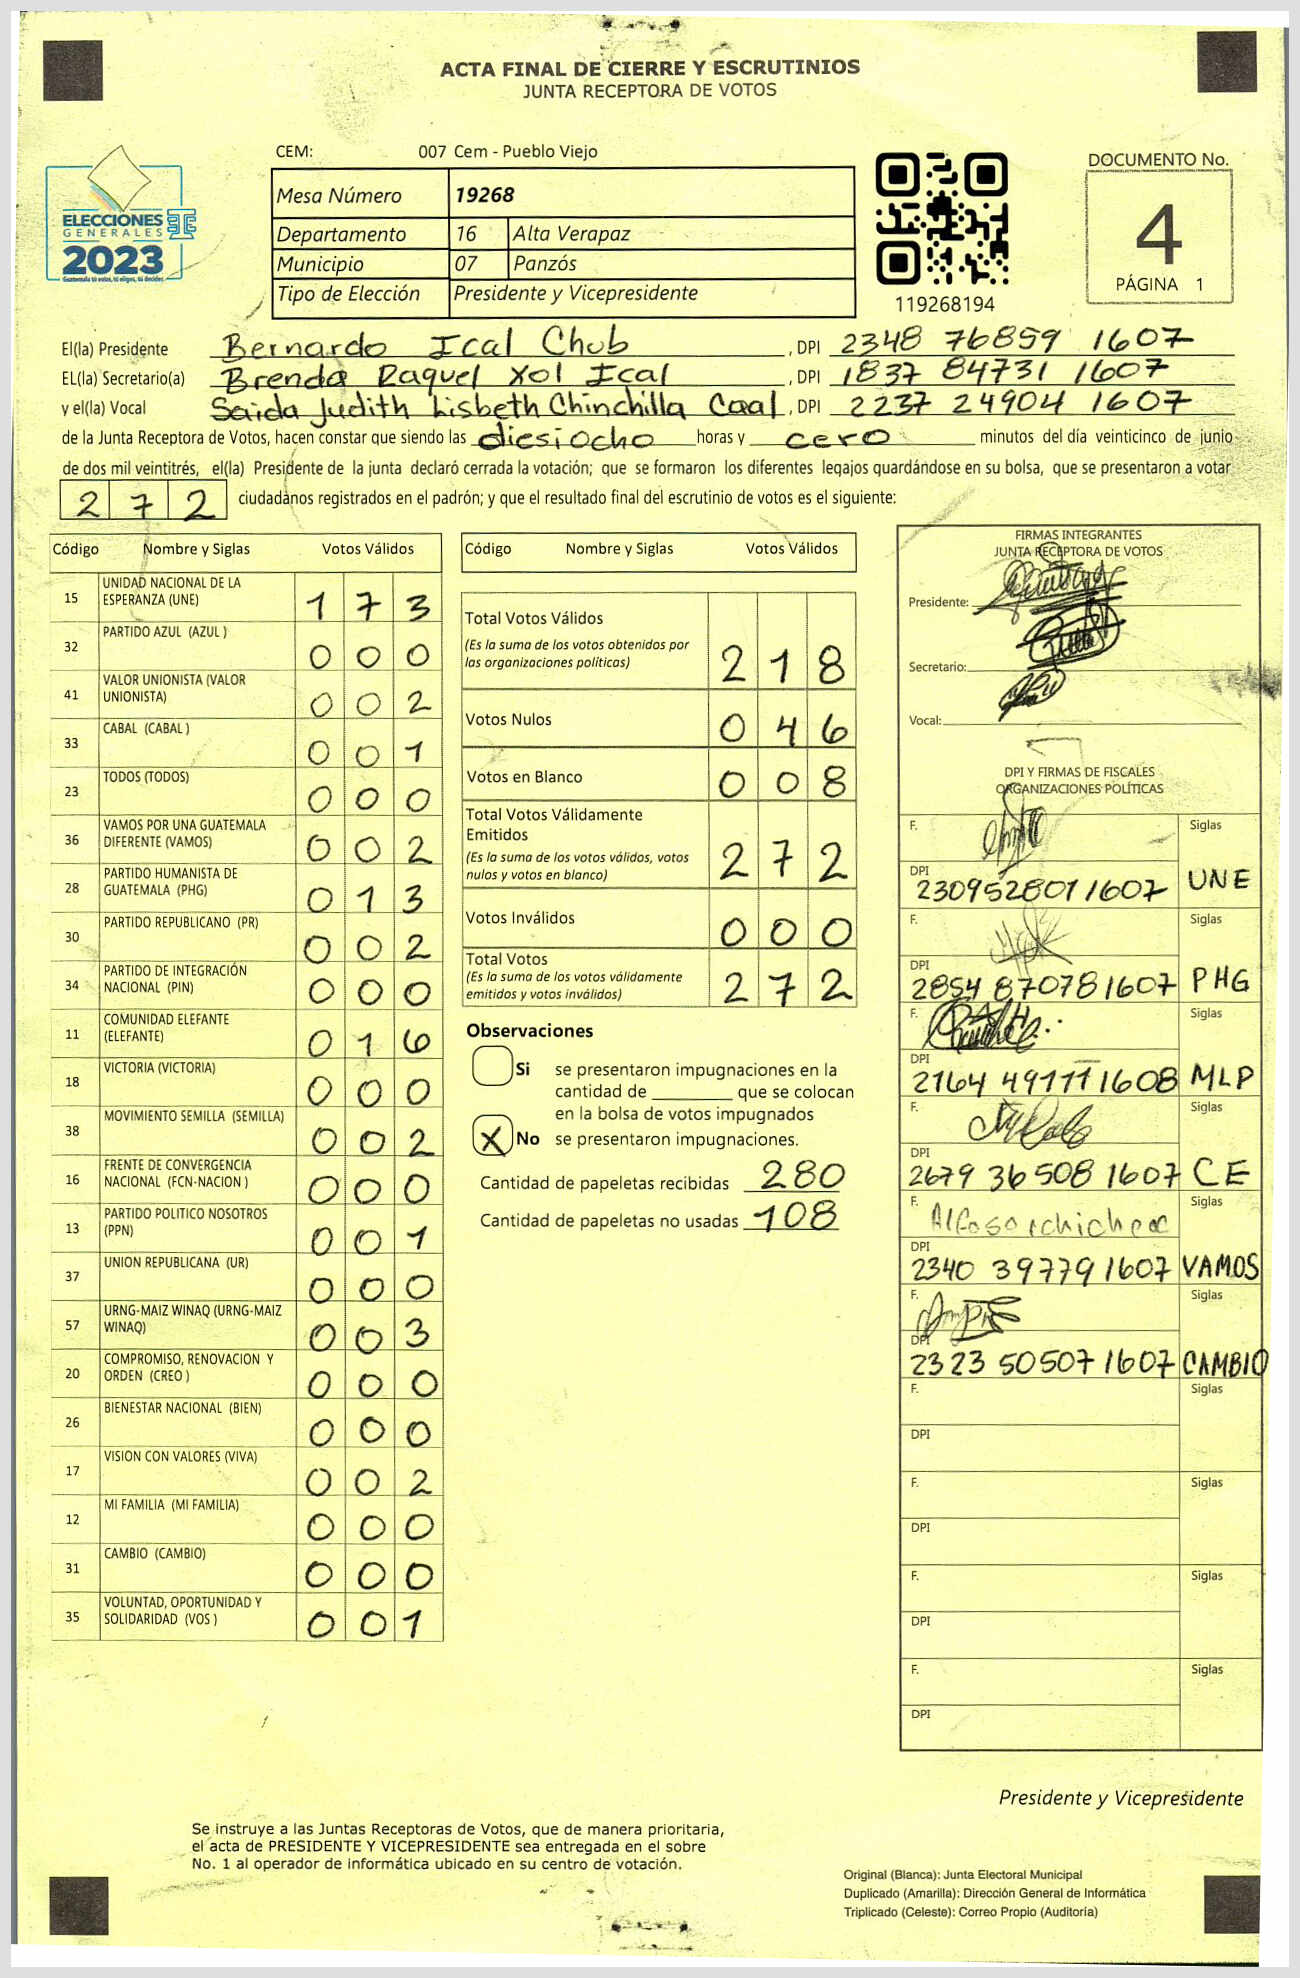 ACTA FINAL DE CIERRE Y ESCRUTINIOS
JUNTA RECEPTORA DE VOTOS
CEM: 007 Cem - Pueblo Viejo
Mesa Número 19268
Departamento 16 Alta Verapaz
Municipio 07 Panzós
Tipo de Elección Presidente y Vicepresidente
ELECCIONES
GENERALES
2023
Guatemala tú votas, tú eliges, tú decides
119268194
DOCUMENTO No.
4
PÁGINA 1
El(la) Presidente Bernardo Ical Chub , DPI 2348 76859 1607
EL(la) Secretario(a) Brenda Raquel Xol Ical , DPI 1837 84731 1607
y el(la) Vocal Saida Judith Lisbeth Chinchilla Caal , DPI 2237 24904 1607
de la Junta Receptora de Votos, hacen constar que siendo las diesiocho horas y cero minutos del día veinticinco de junio
de dos mil veintitrés, el(la) Presidente de la junta declaró cerrada la votación; que se formaron los diferentes legajos quardándose en su bolsa, que se presentaron a votar
272 ciudadanos registrados en el padrón; y que el resultado final del escrutinio de votos es el siguiente:
Código Nombre y Siglas Votos Válidos
15 UNIDAD NACIONAL DE LA ESPERANZA (UNE) 1 7 3
32 PARTIDO AZUL (AZUL ) 0 0 0
41 VALOR UNIONISTA (VALOR UNIONISTA) 0 0 2
33 CABAL (CABAL ) 0 0 1
23 TODOS (TODOS) 0 0 0
36 VAMOS POR UNA GUATEMALA DIFERENTE (VAMOS) 0 0 2
28 PARTIDO HUMANISTA DE GUATEMALA (PHG) 0 1 3
30 PARTIDO REPUBLICANO (PR) 0 0 2
34 PARTIDO DE INTEGRACIÓN NACIONAL (PIN) 0 0 0
11 COMUNIDAD ELEFANTE (ELEFANTE) 0 1 6
18 VICTORIA (VICTORIA) 0 0 0
38 MOVIMIENTO SEMILLA (SEMILLA) 0 0 2
16 FRENTE DE CONVERGENCIA NACIONAL (FCN-NACION ) 0 0 0
13 PARTIDO POLITICO NOSOTROS (PPN) 0 0 1
37 UNION REPUBLICANA (UR) 0 0 0
57 URNG-MAIZ WINAQ (URNG-MAIZ WINAQ) 0 0 3
20 COMPROMISO, RENOVACION Y ORDEN (CREO ) 0 0 0
26 BIENESTAR NACIONAL (BIEN) 0 0 0
17 VISION CON VALORES (VIVA) 0 0 2
12 MI FAMILIA (MI FAMILIA) 0 0 0
31 CAMBIO (CAMBIO) 0 0 0
35 VOLUNTAD, OPORTUNIDAD Y SOLIDARIDAD (VOS ) 0 0 1
Código Nombre y Siglas Votos Válidos
Total Votos Válidos 2 1 8
(Es la suma de los votos obtenidos por
las organizaciones politicas)
Votos Nulos 0 4 6
Votos en Blanco 0 0 8
Total Votos Válidamente
Emitidos 2 7 2
(Es la suma de los votos válidos, votos
nulos y votos en blanco)
Votos Inválidos 0 0 0
Total Votos 2 7 2
(Es la suma de los votos válidamente
emitidos y votos inválidos)
Observaciones
Si se presentaron impugnaciones en la
cantidad de ________ que se colocan
en la bolsa de votos impugnados
X No se presentaron impugnaciones.
Cantidad de papeletas recibidas 280
Cantidad de papeletas no usadas 108
FIRMAS INTEGRANTES
JUNTA RECEPTORA DE VOTOS
Presidente:
Secretario:
Vocal:
DPI Y FIRMAS DE FISCALES
ORGANIZACIONES POLÍTICAS
F. Siglas
DPI 230952801 1607 UNE
F. Siglas
DPI 2854 87078 1607 PHG
F. Siglas
DPI 2164 49111 1608 MLP
F. Siglas
DPI 2679 36508 1607 CE
F. Siglas
DPI 2340 39779 1607 VAMOS
F. Siglas
DPI 2323 50507 1607 CAMBIO
F. Siglas
DPI
F. Siglas
DPI
F. Siglas
DPI
F. Siglas
DPI
Presidente y Vicepresidente
Se instruye a las Juntas Receptoras de Votos, que de manera prioritaria,
el acta de PRESIDENTE Y VICEPRESIDENTE sea entregada en el sobre
No. 1 al operador de informática ubicado en su centro de votación.
Original (Blanca): Junta Electoral Municipal
Duplicado (Amarilla): Dirección General de Informática
Triplicado (Celeste): Correo Propio (Auditoría)